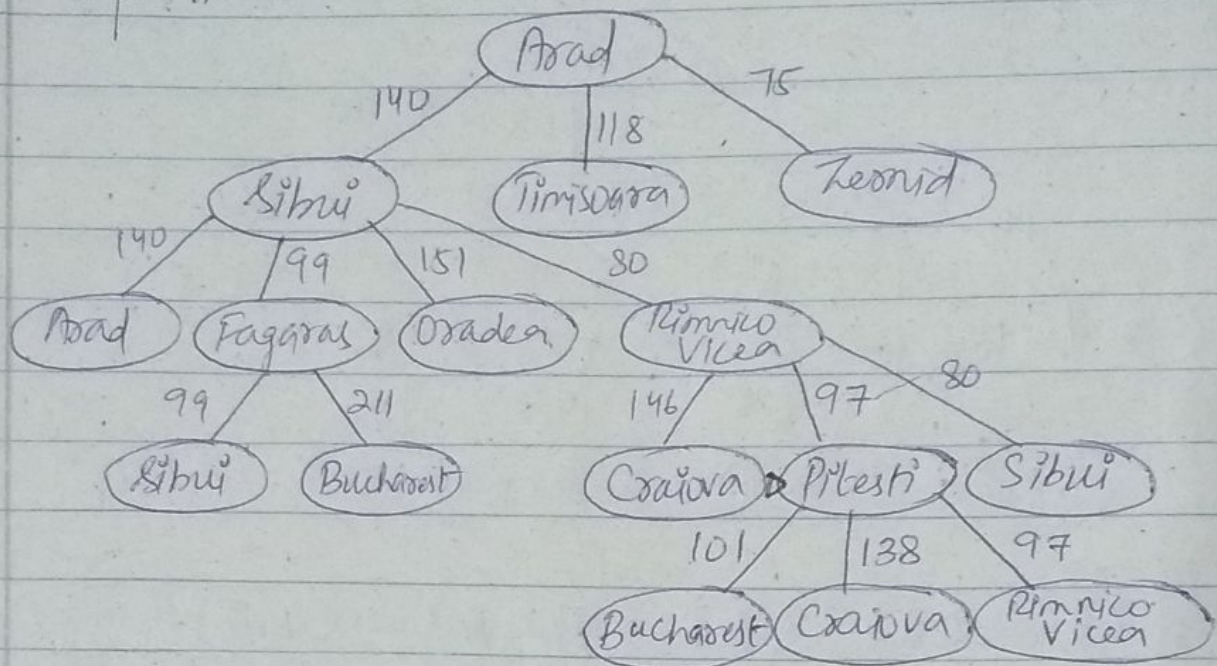 Arad
140
118
75
Sibui
Timisoara
Zernid
140
99
151
80
Arad
Fagaras
Oradea
Rimnico
Vicea
99
211
146
97
80
Sibui
Bucharest
Craiova
Pitesti
Sibui
101
138
97
Bucharest
Craiova
Rimnico
Vicea